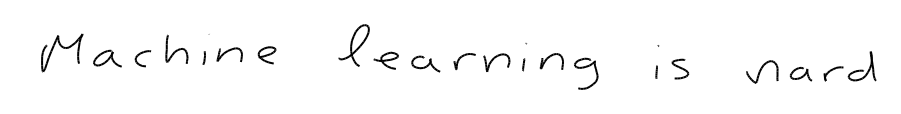 Machine learning is nard